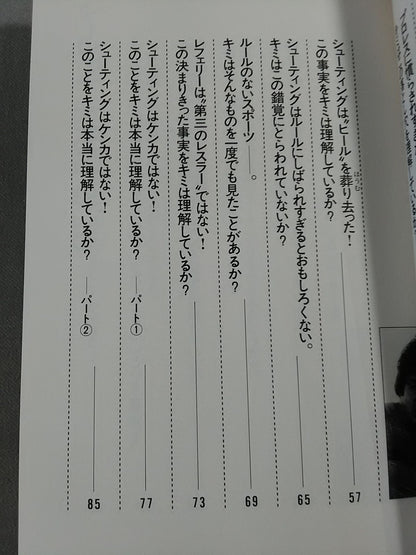 シューティングは〝ヒール〟を葬り去った!
ほうむ
この事実をキミは理解しているか? 57
シューティングはルールにしばられすぎるとおもしろくない。
キミはこの錯覚にとらわれていないか? 65
ルールのないスポーツ——。
キミはそんなものを一度でも見たことがあるか? 69
レフェリーは〝第三のレスラー〟ではない!
この決まりきった事実をキミは理解しているか? 73
シューティングはケンカではない!
このことをキミは本当に理解しているか? ——パート① 77
シューティングはケンカではない!
このことをキミは本当に理解しているか? ——パート② 85